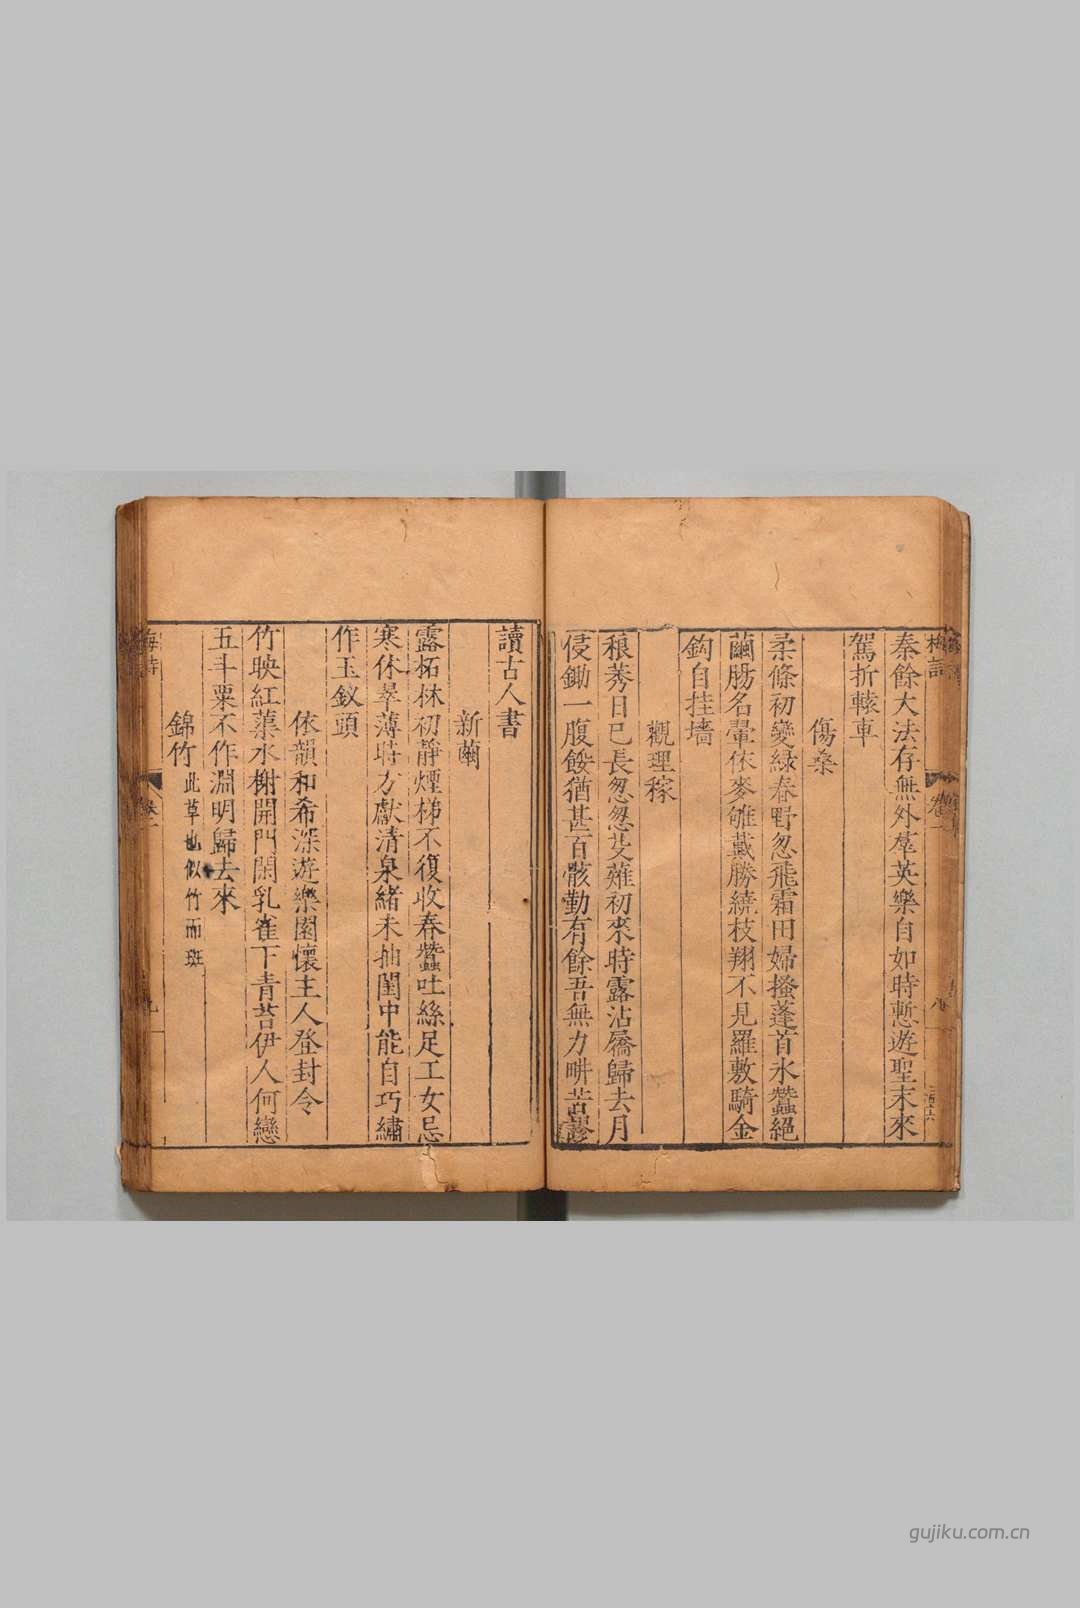 秦餘大法存無外䓁英樂自如時慙遊聖末來
駕折轅車
傷桑
柔條初變緑春野忽飛霜田婦搔蓬首氷蠶絶
繭腸名翬依麥雊戴勝繞枝翔不見羅敷騎金
鈎自挂墻
觀理稼
稂莠日已長忽忽芟薙初來時露沾屩歸去月
侵鋤一腹餒猶甚百骸勤有餘吾無力畊苦謬
讀古人書
新繭
露拓林初靜煙梯不復收春蠶吐絲足工女忌
寒休翠薄時方獻清泉緒未抽閨中能自巧繡
作玉釵頭
依韻和希深遊樂園懷主人登封令
竹映紅蕖水榭開門閑乳雀下青苔伊人何戀
五斗粟不作淵明歸去來
錦竹 此草也似竹而斑
卷一
九
gujiku.com.cn